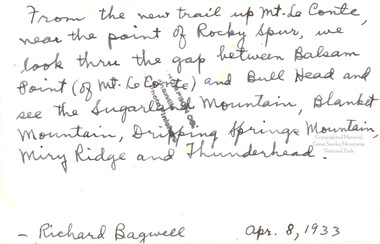 From the new trail up Mt. Le Conte,
near the point of Rocky Spur, we
look thru the gap between Balsam
Point (of Mt. Le Conte) and Bull Head and
see the Sugarland Mountain, Blanket
Mountain, Dripping Springs Mountain,
Miry Ridge and Thunderhead.
Great Smoky Mountains
National Park
- Richard Bagwell Apr. 8, 1933